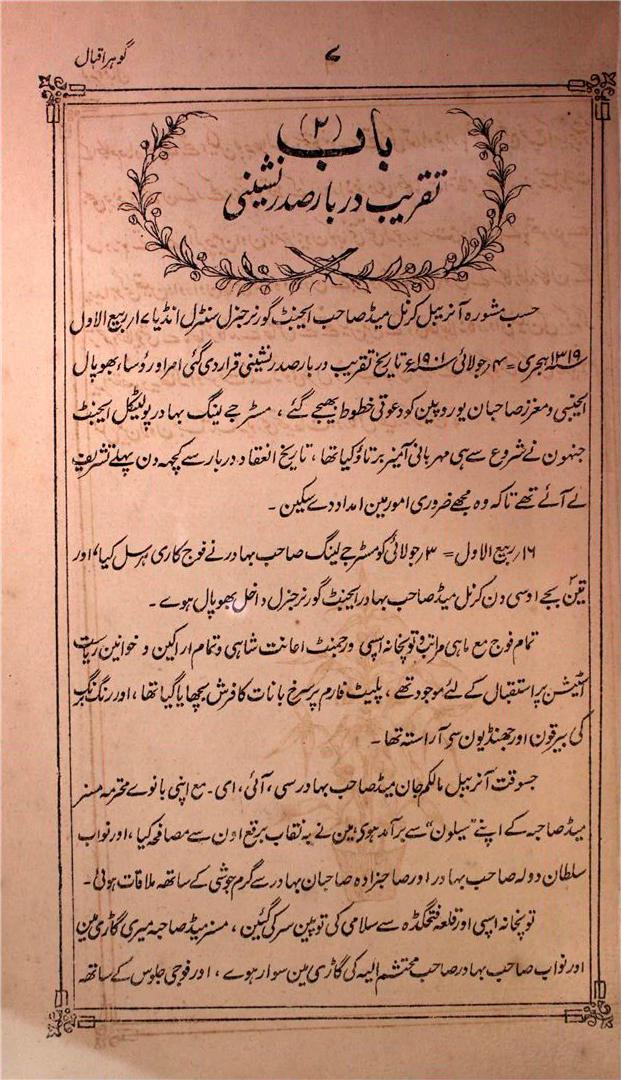 گوہر اقبال
۷
باب (۲)
تقریب دربار صدر نشینی
حسب مشورہ آنریبل کرنل میڈ صاحب ایجنٹ گورنر جنرل سنٹرل انڈیا ۱۷ ربیع الاول
۱۳۱۹ ہجری = ۴ جولائی ۱۹۰۱ء تاریخ تقریب دربار صدر نشینی قرار دی گئی امرا و رؤساء بھوپال
ایجنسی و معزز صاحبان یوروپین کو دعوتی خطوط بھیجے گئے ، مسٹر جے لینگ بہادر پولیٹکل ایجنٹ
جنہون نے شروع سے ہی مہربانی آمیز برتاؤ کیا تھا ، تاریخ انعقاد دربار سے کچہہ دن پہلے تشریف
لے آئے تھے تاکہ وہ مجھے ضروری امور مین امداد دے سکین ۔
۱۶ ربیع الاول = ۳ جولائی کو مسٹر جے لینگ صاحب بہادر نے فوج کا ری ہرسل کیا ، اور
تین بجے اوسی دن کرنل میڈ صاحب بہادر ایجنٹ گورنر جنرل داخل بھوپال ہوے ۔
تمام فوج مع ماہی مراتب و توپخانہ اسپی و رجمنٹ اعانت شاہی و تمام اراکین و خوانین ریاست
اسٹیشن پر استقبال کے لئے موجود تھے ، پلیٹ فارم پر سرخ بانات کا فرش بچھایا گیا تھا ، اور رنگ برنگ
کی بیرقون اور جھنڈیون سے آراستہ تھا ۔
جسوقت آنریبل مالکم جان میڈ صاحب بہادر سی ، آئی ، ای ۔ مع اپنی بانوے محترمہ مسز
میڈ صاحبہ کے اپنے "سیلون" سے برآمد ہوی مین نے بہ نقاب برقع اون سے مصافحہ کیا ، اور نواب
سلطان دولہ صاحب بہادر اور صاحبزادہ صاحبان بہادر سے گرم جوشی کے ساتھہ ملاقات ہوئی ۔
توپخانہ اسپی اور قلعہ فتحگڈہ سے سلامی کی توپین سر کی گئین ، مسز میڈ صاحبہ میری گاڑی مین
اور نواب صاحب بہادر صاحب محتشم الیہ کی گاڑی مین سوار ہوے ، اور فوجی جلوس کے ساتھہ